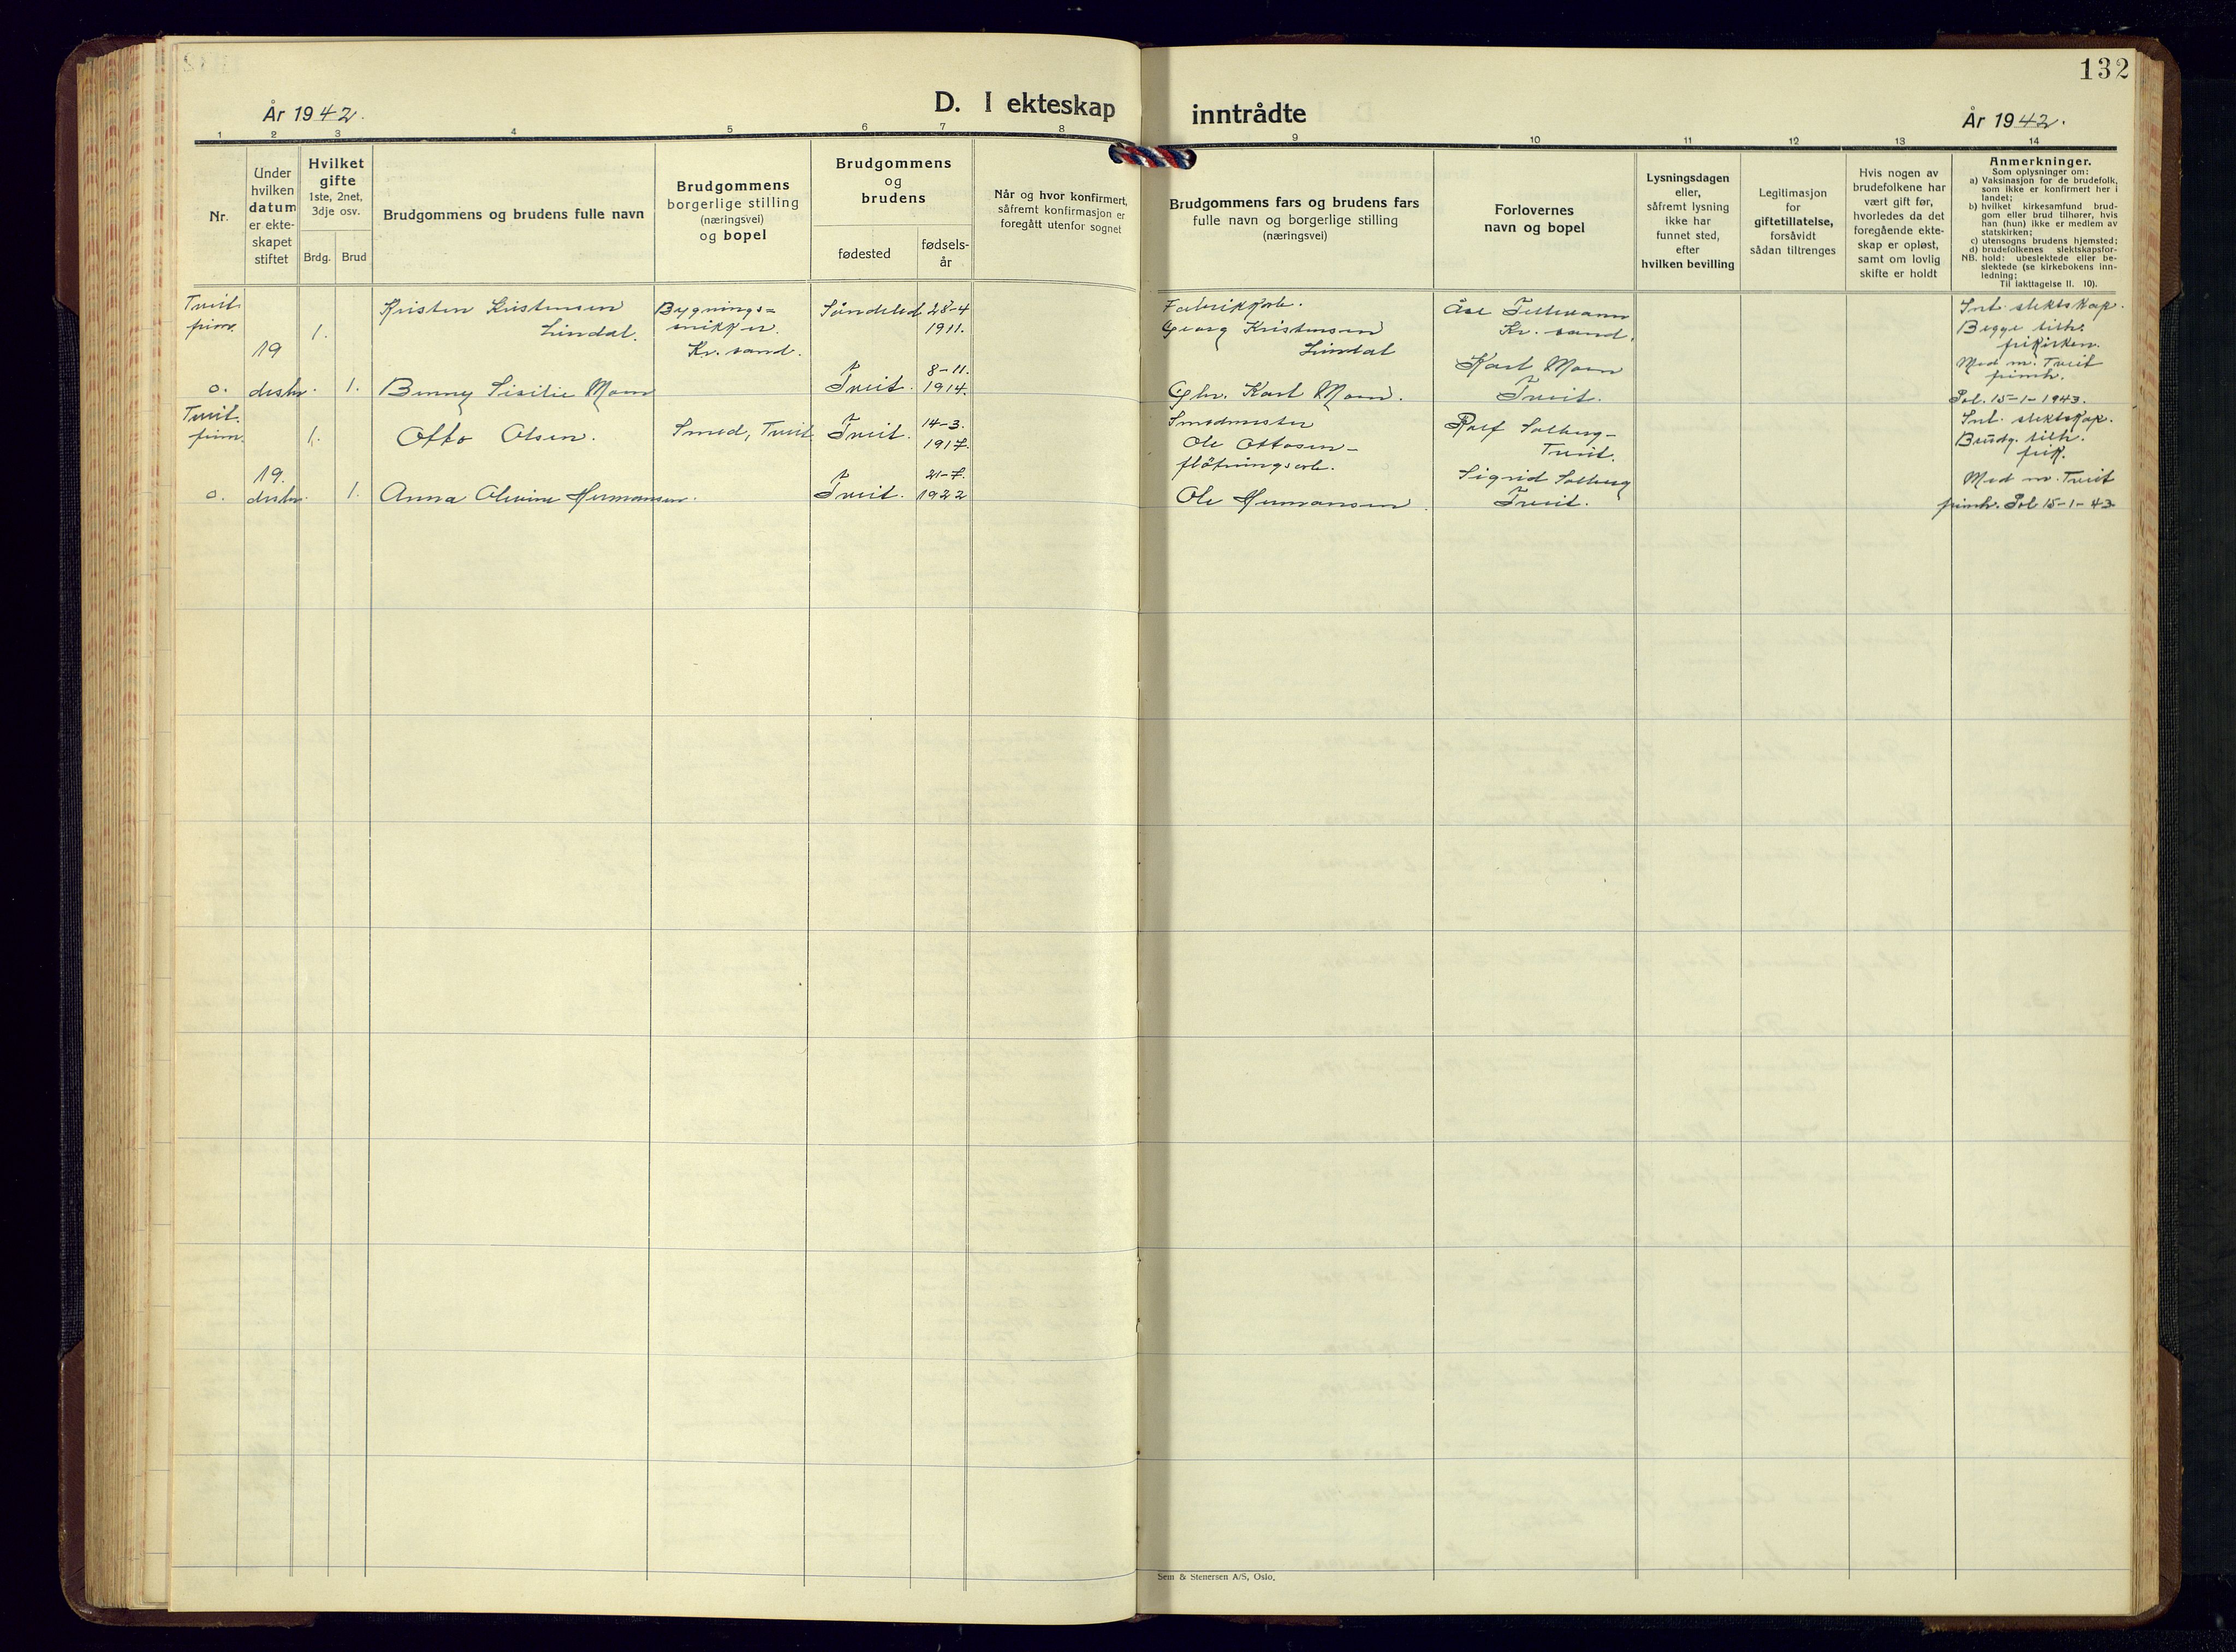 132
År 1942.
D. I ekteskap inntrådte
År 1942.
1 2 3 4 5 6 7 8 9 10 11 12 13 14
Nr.
Under
hvilken
datum
er ekte-
skapet
stiftet
Hvilket
gifte
1ste, 2net,
3dje osv.
Brdg. Brud
Brudgommens og brudens fulle navn
Brudgommens
borgerlige stilling
(næringsvei)
og bopel
Brudgommens
og
brudens
fødested
fødsels-
år
Når og hvor konfirmert,
såfremt konfirmasjon er
foregått utenfor sognet
Brudgommens fars og brudens fars
fulle navn og borgerlige stilling
(næringsvei)
Forlovernes
navn og bopel
Lysningsdagen
eller,
såfremt lysning
ikke har
funnet sted,
efter
hvilken bevilling
Legitimasjon
for
giftetillatelse,
forsåvidt
sådan tiltrenges
Hvis nogen av
brudefolkene har
vært gift før,
hvorledes da det
foregående ekte-
skap er opløst,
samt om lovlig
skifte er holdt
Anmerkninger.
Som oplysninger om:
a) Vaksinasjon for de brudefolk,
som ikke er konfirmert her i
landet;
b) hvilket kirkesamfund brud-
gom eller brud tilhører, hvis
han (hun) ikke er medlem av
statskirken;
c) utensogns brudens hjemsted;
d) brudefolkenes slektskapsfor-
NB. hold: ubeslektede eller be-
slektede (se kirkebokens inn-
ledning;
Til iakttagelse II. 10).
Tveit
frim.
o.
19
desbr.
1.
1.
Kristen Kristensen
Lindal.
Benny Sisilie Moen
Bygnings=
snikker.
Kr. sand.
Söndeled
Tveit.
28-4
1911.
8-11.
1914.
Fabrikkarb.
Georg Kristensen
Lindal
Gbr. Karl Moen.
Åse Tellemann
Kr. sand.
Karl Moen
Tveit.
Int. slektskap.
Begge tilh.
frikirken.
Med m. Tveit
frimh.
Pol. 15-1-1943.
Tveit.
frim.
o.
19.
desbr.
1.
1.
Otto Olsen.
Anna Olivine Hermansen.
Smed, Tveit
Tveit.
Tveit.
14-3.
1917.
21-7.
1922
Smedmester
Ole Ottosen -
fløtningsarb.
Ole Hermansen
Rolf Solberg-
Tveit.
Sigrid Solberg
Tveit.
Int. slektskap.
Brudg. tilh.
frik.
Med m. Tveit
frimh. Pol 15-1-43
Sem & Stenersen A/S, Oslo.